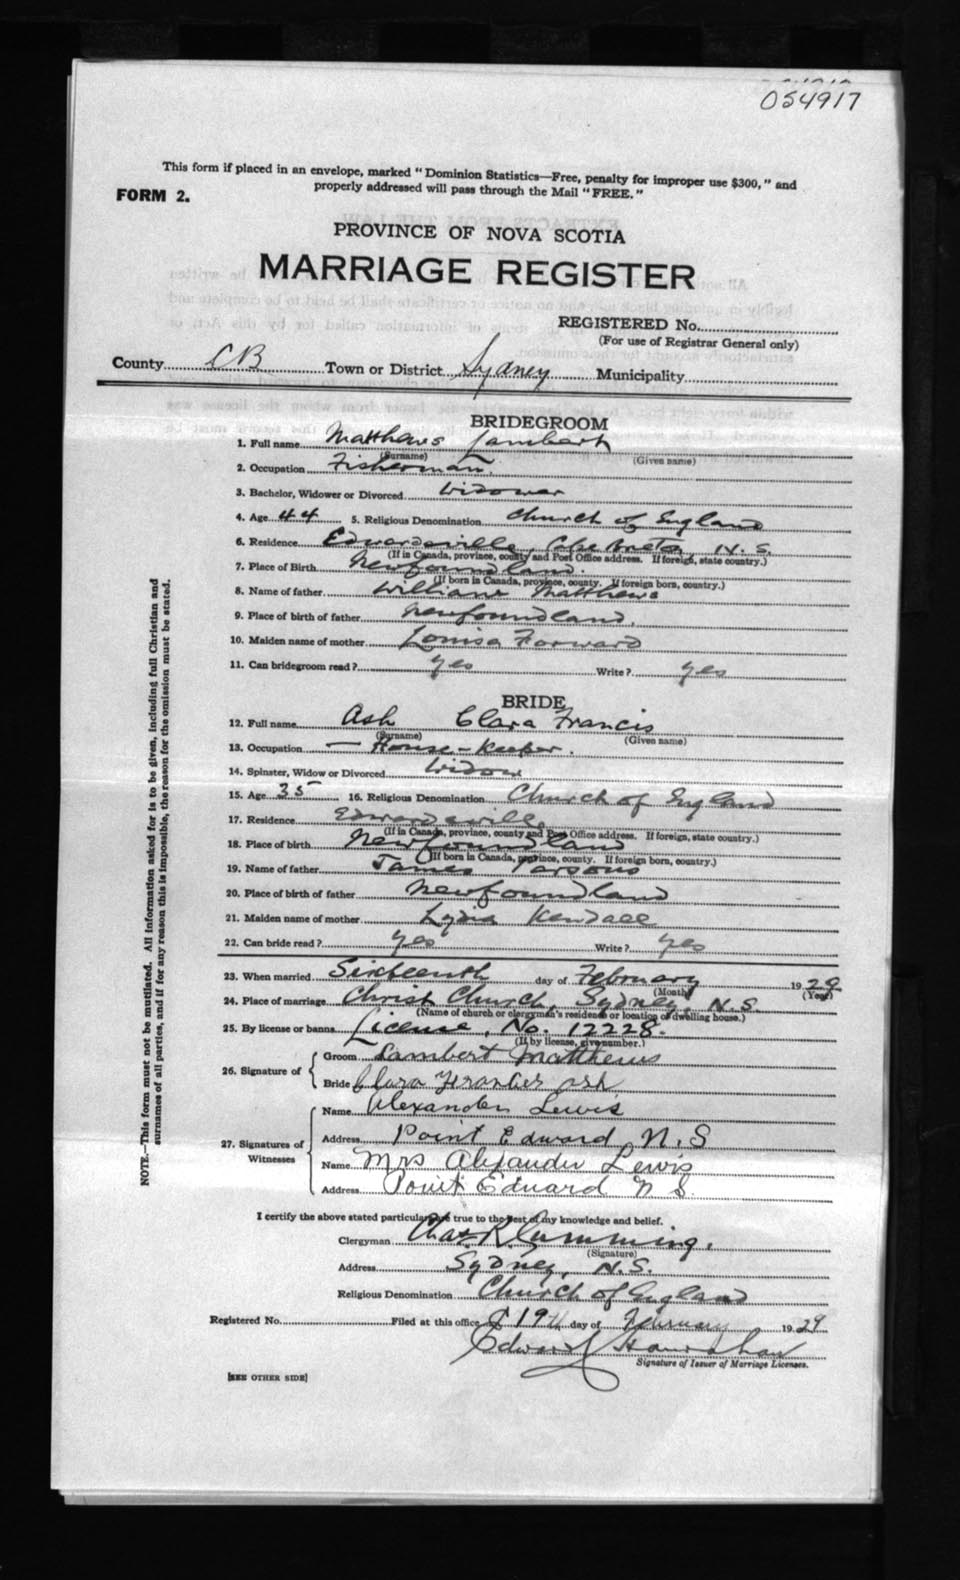 054917
This form if placed in an envelope, marked "Dominion Statistics—Free, penalty for improper use $300," and
properly addressed will pass through the Mail "FREE."
FORM 2.
PROVINCE OF NOVA SCOTIA
MARRIAGE REGISTER
REGISTERED No.
(For use of Registrar General only)
County CB Town or District Sydney Municipality
BRIDEGROOM
1. Full name Matthews Lambert
(Surname) (Given name)
2. Occupation Fisherman.
3. Bachelor, Widower or Divorced Widower
4. Age 44 5. Religious Denomination Church of England
6. Residence Edwardsville, Cape Breton, N.S.
(If in Canada, province, county and Post Office address. If foreign, state country.)
7. Place of Birth Newfoundland.
(If born in Canada, province, county. If foreign born, country.)
8. Name of father William Matthews
9. Place of birth of father Newfoundland,
10. Maiden name of mother Louisa Forward
11. Can bridegroom read? yes Write? yes
BRIDE
12. Full name Ash Clara Francis
(Surname) (Given name)
13. Occupation — House-keeper.
14. Spinster, Widow or Divorced Widow
15. Age 35 16. Religious Denomination Church of England
17. Residence Edwardsville,
(If in Canada, province, county and Post Office address. If foreign, state country.)
18. Place of birth Newfoundland
(If born in Canada, province, county. If foreign born, country.)
19. Name of father James Parsons
20. Place of birth of father Newfoundland
21. Maiden name of mother Lydia Kendall
22. Can bride read? yes Write? yes
23. When married Sixteenth day of February 1929
(Month) (Year)
24. Place of marriage Christ Church, Sydney, N.S.
(Name of church or clergyman's residence or location of dwelling house.)
25. By license or banns License, No. 12228.
(If by license, give number.)
26. Signature of
Groom Lambert Matthews
Bride Clara Francies Ash
27. Signatures of Witnesses
Name Alexander Lewis
Address Point Edward, N.S
Name Mrs Alexander Lewis
Address Point Edward N S.
I certify the above stated particulars are true to the best of my knowledge and belief.
Clergyman Chas. R. Cumming.
(Signature)
Address Sydney, N.S.
Religious Denomination Church of England
Registered No. Filed at this office 19th day of February 1929
Edward Hanrahan
Signature of Issuer of Marriage Licenses.
[SEE OTHER SIDE]
NOTE.—This form must not be mutilated. All information asked for is to be given, including full Christian and
surnames of all parties, and if for any reason this is impossible, the reason for the omission must be stated.